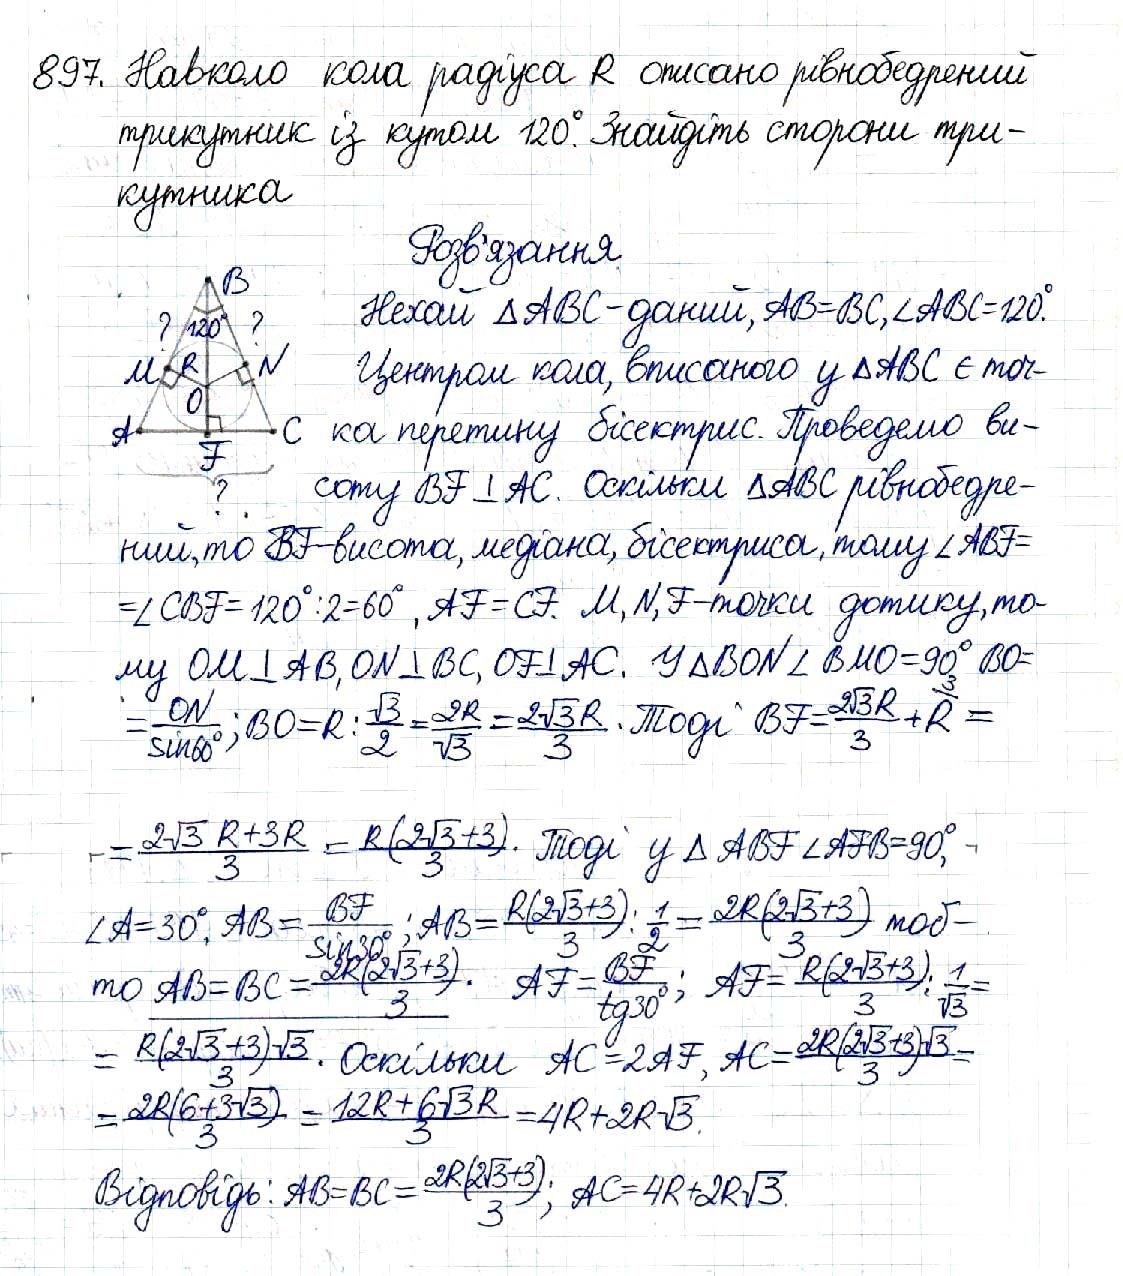 897. Навколо кола радіуса R описано рівнобедрений
трикутник із кутом 120°. Знайдіть сторони три-
кутника
Розв'язання
B
? 120° ?
M R N
O
A F C
?
Нехай △ABC-даний, AB=BC, ∠ABC=120°.
Центром кола, вписаного у △ABC є точ-
ка перетину бісектрис. Проведемо ви-
соту BF⊥AC. Оскільки △ABC рівнобедре-
ний, то BF-висота, медіана, бісектриса, тому ∠ABF=
=∠CBF=120°:2=60°, AF=CF. M, N, F-точки дотику, то-
му OM⊥AB, ON⊥BC, OF⊥AC. У △BON ∠BMO=90° BO=
=ON/sin60°; BO=R:√3/2=2R/√3=2√3R/3. Тоді BF=2√3R/3+R=
=2√3R+3R/3=R(2√3+3)/3. Тоді у △ABF ∠AFB=90°,
∠A=30°, AB=BF/sin30°; AB=R(2√3+3)/3:1/2=2R(2√3+3)/3 тоб-
то AB=BC=2R(2√3+3)/3. AF=BF/tg30°; AF=R(2√3+3)/3:1/√3=
=R(2√3+3)√3/3. Оскільки AC=2AF, AC=2R(2√3+3)√3/3=
=2R(6+3√3)/3=12R+6√3R/3=4R+2R√3.
Відповідь: AB=BC=2R(2√3+3)/3; AC=4R+2R√3.